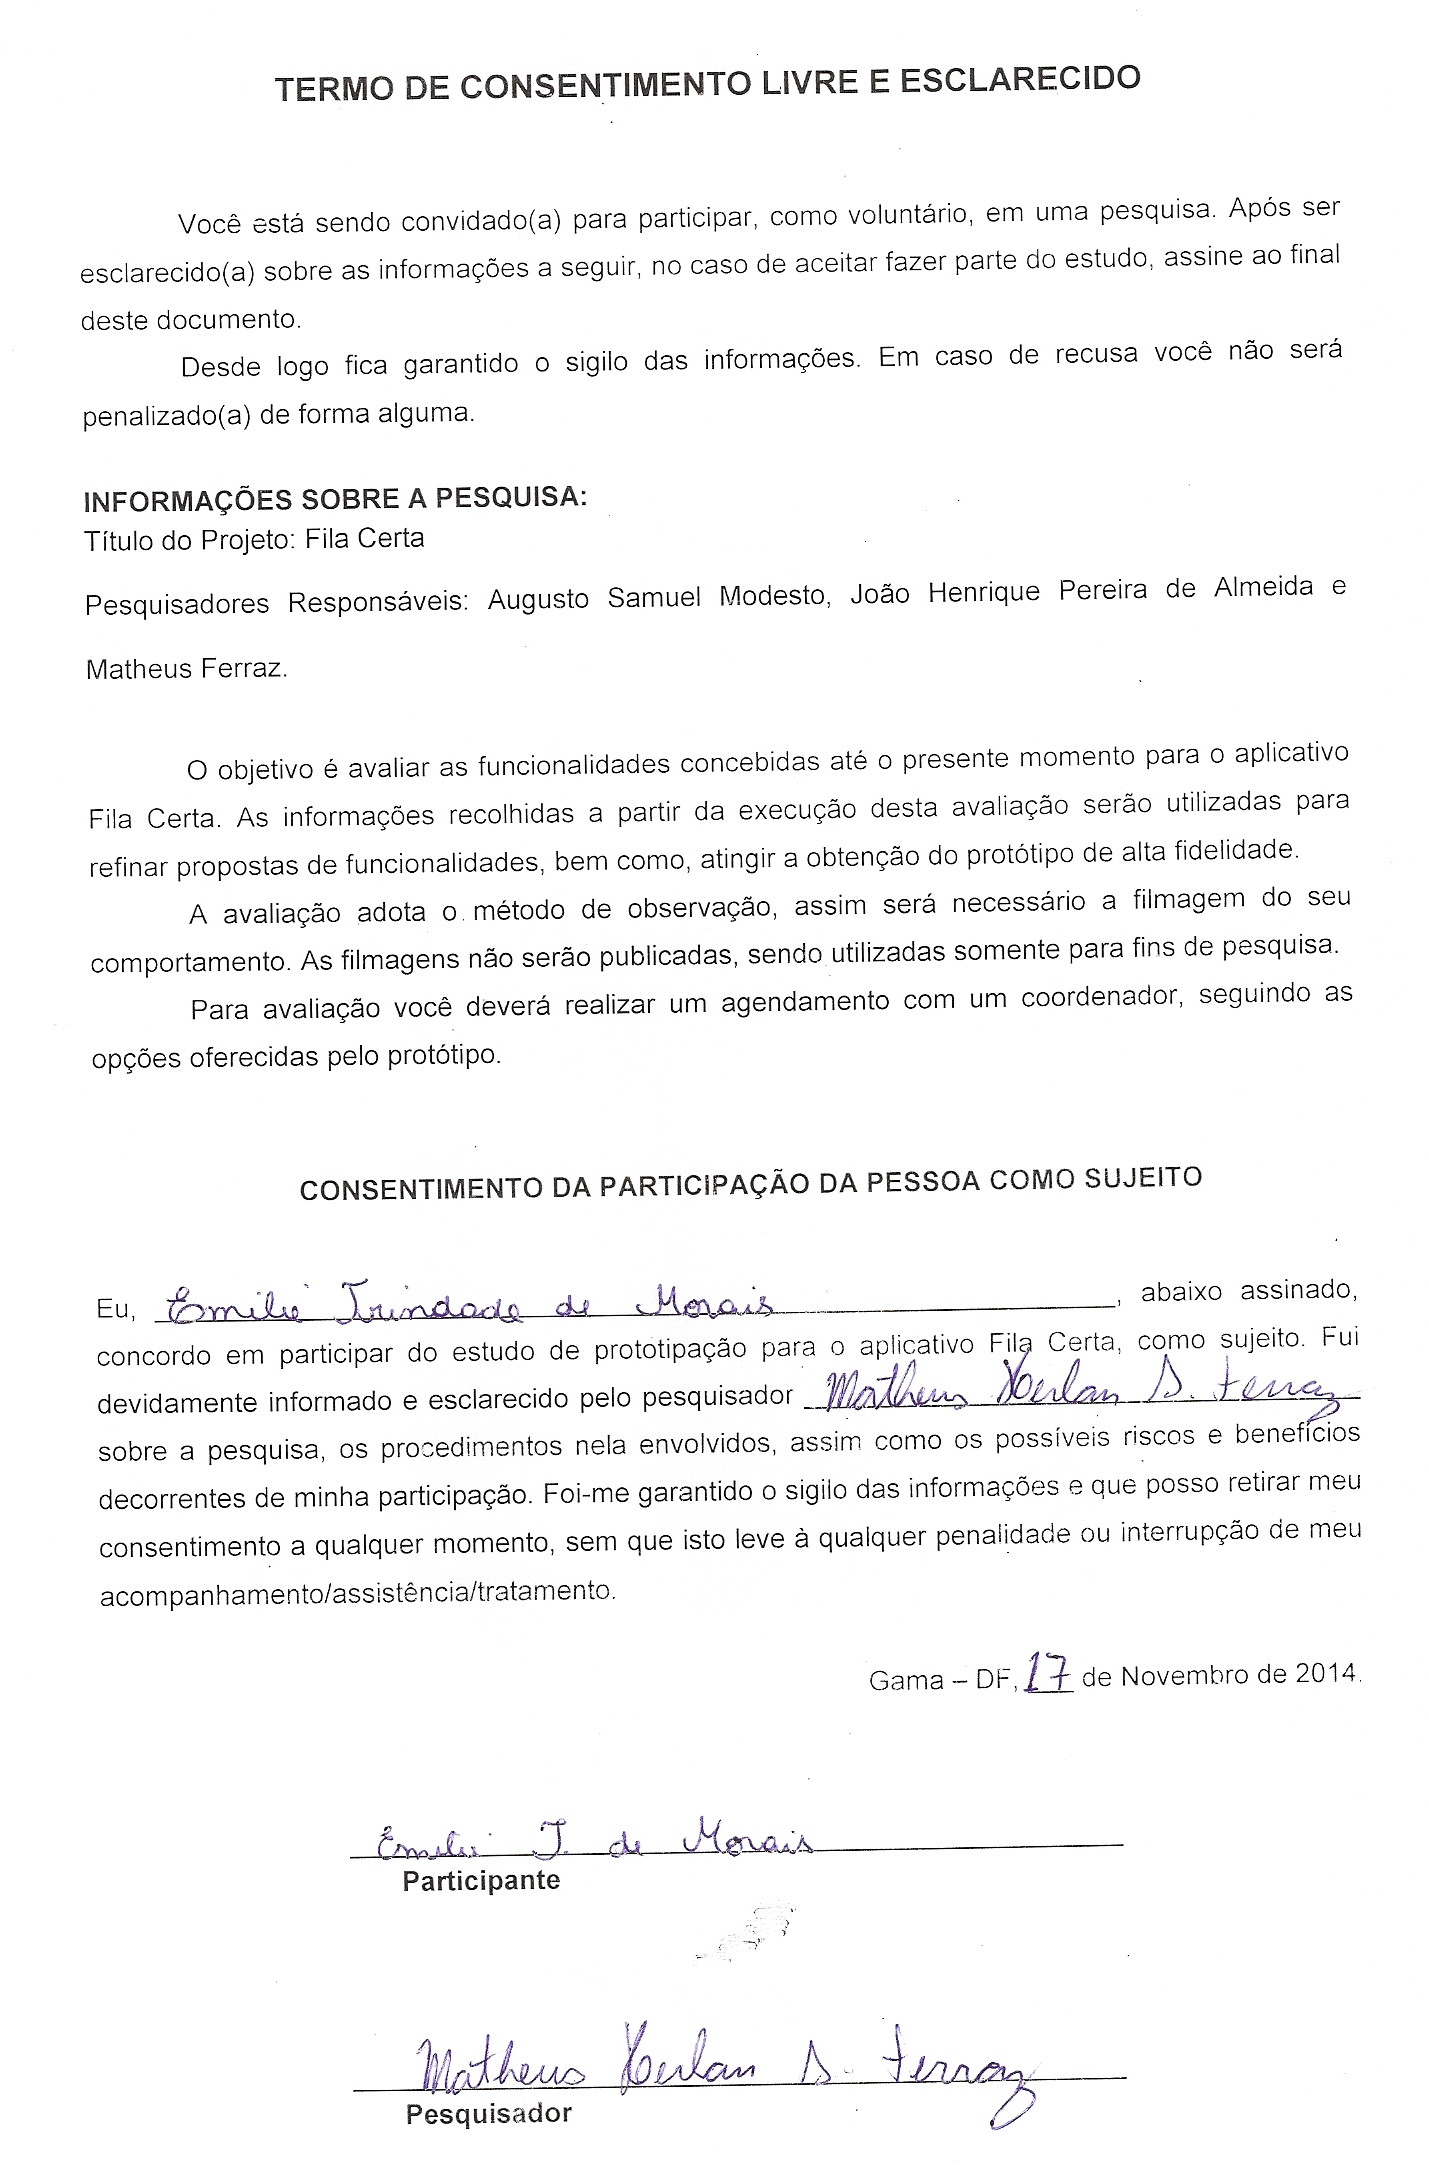 TERMO DE CONSENTIMENTO LIVRE E ESCLARECIDO
Você está sendo convidado(a) para participar, como voluntário, em uma pesquisa. Após ser
esclarecido(a) sobre as informações a seguir, no caso de aceitar fazer parte do estudo, assine ao final
deste documento.
Desde logo fica garantido o sigilo das informações. Em caso de recusa você não será
penalizado(a) de forma alguma.
INFORMAÇÕES SOBRE A PESQUISA:
Título do Projeto: Fila Certa
Pesquisadores Responsáveis: Augusto Samuel Modesto, João Henrique Pereira de Almeida e
Matheus Ferraz.
O objetivo é avaliar as funcionalidades concebidas até o presente momento para o aplicativo
Fila Certa. As informações recolhidas a partir da execução desta avaliação serão utilizadas para
refinar propostas de funcionalidades, bem como, atingir a obtenção do protótipo de alta fidelidade.
A avaliação adota o método de observação, assim será necessário a filmagem do seu
comportamento. As filmagens não serão publicadas, sendo utilizadas somente para fins de pesquisa.
Para avaliação você deverá realizar um agendamento com um coordenador, seguindo as
opções oferecidas pelo protótipo.
CONSENTIMENTO DA PARTICIPAÇÃO DA PESSOA COMO SUJEITO
Eu, Emilie Trindade de Morais, abaixo assinado,
concordo em participar do estudo de prototipação para o aplicativo Fila Certa, como sujeito. Fui
devidamente informado e esclarecido pelo pesquisador Matheus Herlan S. Ferraz
sobre a pesquisa, os procedimentos nela envolvidos, assim como os possíveis riscos e benefícios
decorrentes de minha participação. Foi-me garantido o sigilo das informações e que posso retirar meu
consentimento a qualquer momento, sem que isto leve à qualquer penalidade ou interrupção de meu
acompanhamento/assistência/tratamento.
Gama – DF, 17 de Novembro de 2014.
Emilie T. de Morais
Participante
Matheus Herlan S. Ferraz
Pesquisador